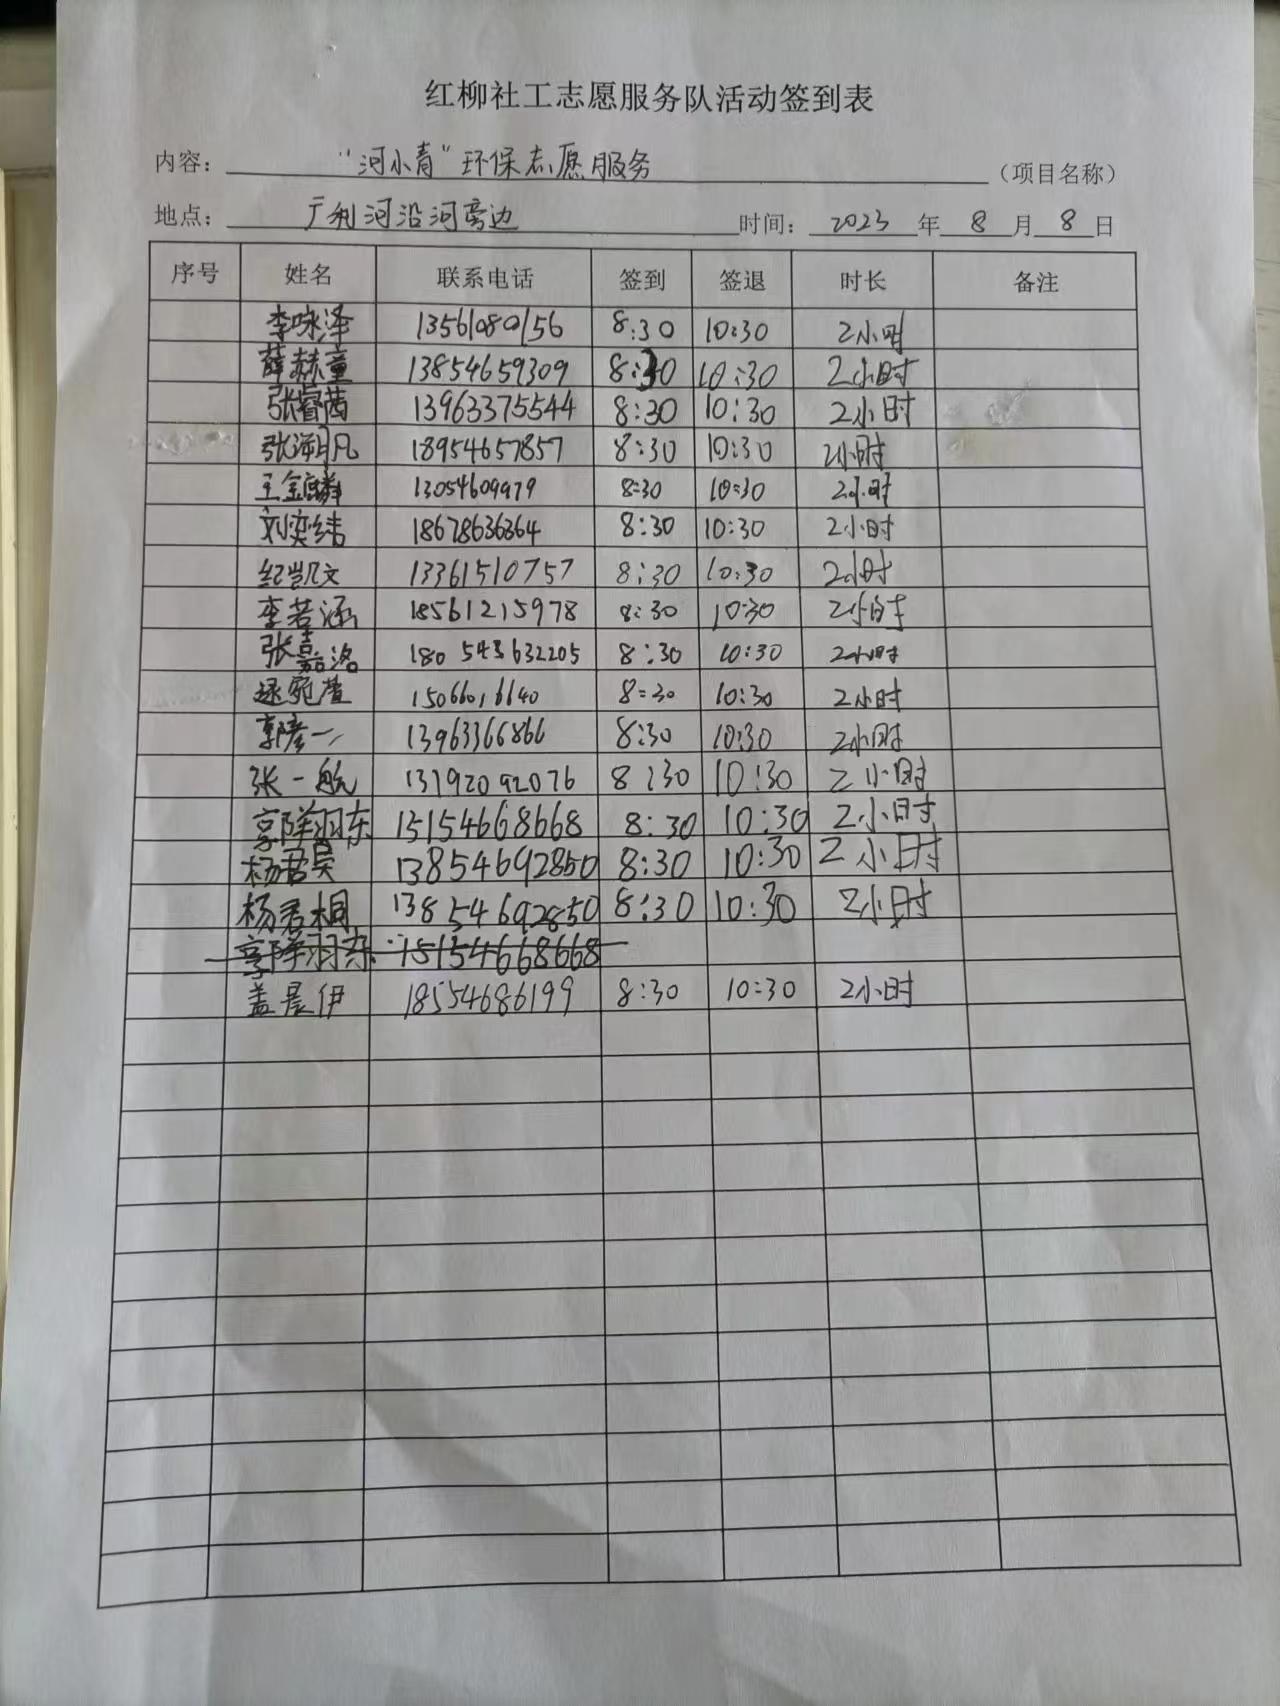 红柳社工志愿服务队活动签到表
内容： "河小青"环保志愿服务 （项目名称）
地点： 广利河沿河旁边 时间： 2023 年 8 月 8 日
序号 姓名 联系电话 签到 签退 时长 备注
李咏泽 13561080156 8:30 10:30 2小时
薛赫童 13854659309 8:30 10:30 2小时
张睿茜 13963375544 8:30 10:30 2小时
张 凡 18954657857 8:30 10:30 2小时
王金麟 13054609979 8:30 10:30 2小时
刘奕纬 18678636364 8:30 10:30 2小时
纪凯文 13361510757 8:30 10:30 2小时
李若涵 18561215978 8:30 10:30 2小时
张嘉洛 180 543632205 8:30 10:30 2小时
逯宛萱 15066016640 8:30 10:30 2小时
郭彦一 13963366866 8:30 10:30 2小时
张一航 13192092076 8:30 10:30 2小时
羽东 15154668668 8:30 10:30 2小时
杨君昊 13854692850 8:30 10:30 2小时
杨君桐 13854692850 8:30 10:30 2小时
羽东 15154668668
盖晨伊 18554686199 8:30 10:30 2小时